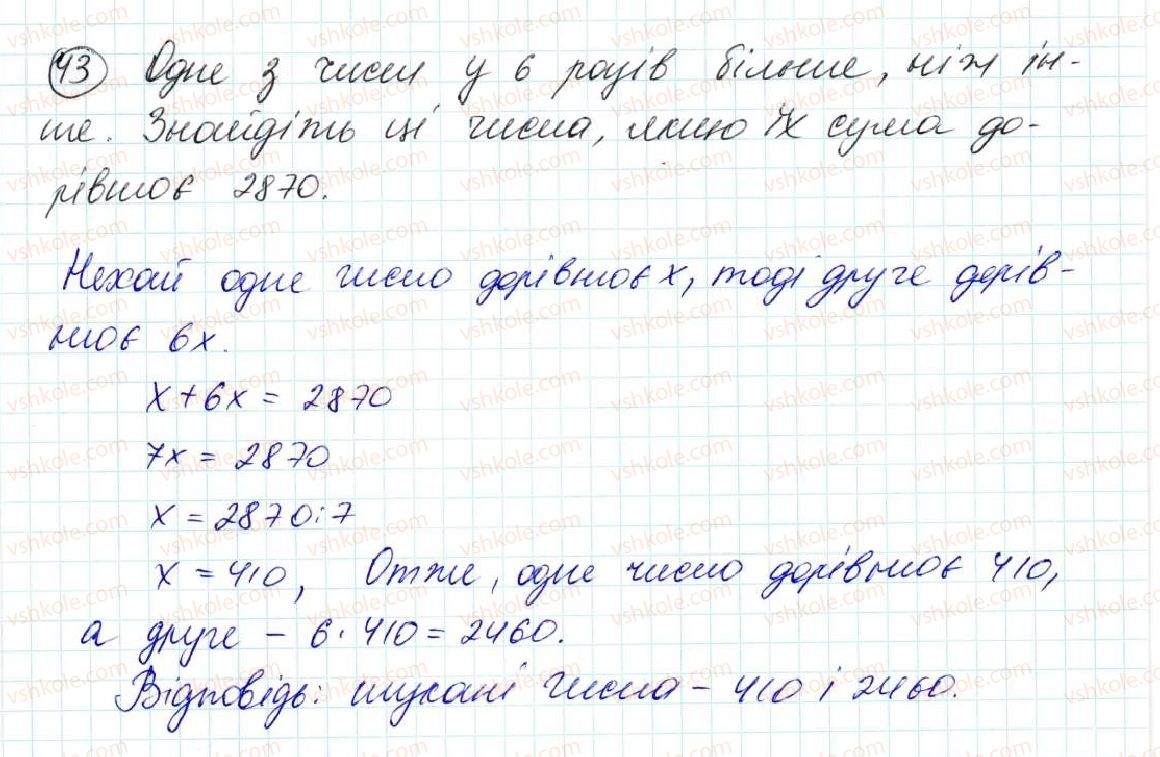 43 Одне з чисел у 6 разів більше, ніж ін-
ше. Знайдіть ці числа, якщо їх сума до-
рівнює 2870.
Нехай одне число дорівнює x, тоді друге дорів-
нює 6x.
x + 6x = 2870
7x = 2870
x = 2870:7
x = 410, Отже, одне число дорівнює 410,
а друге – 6 · 410 = 2460.
Відповідь: шукані числа – 410 і 2460.